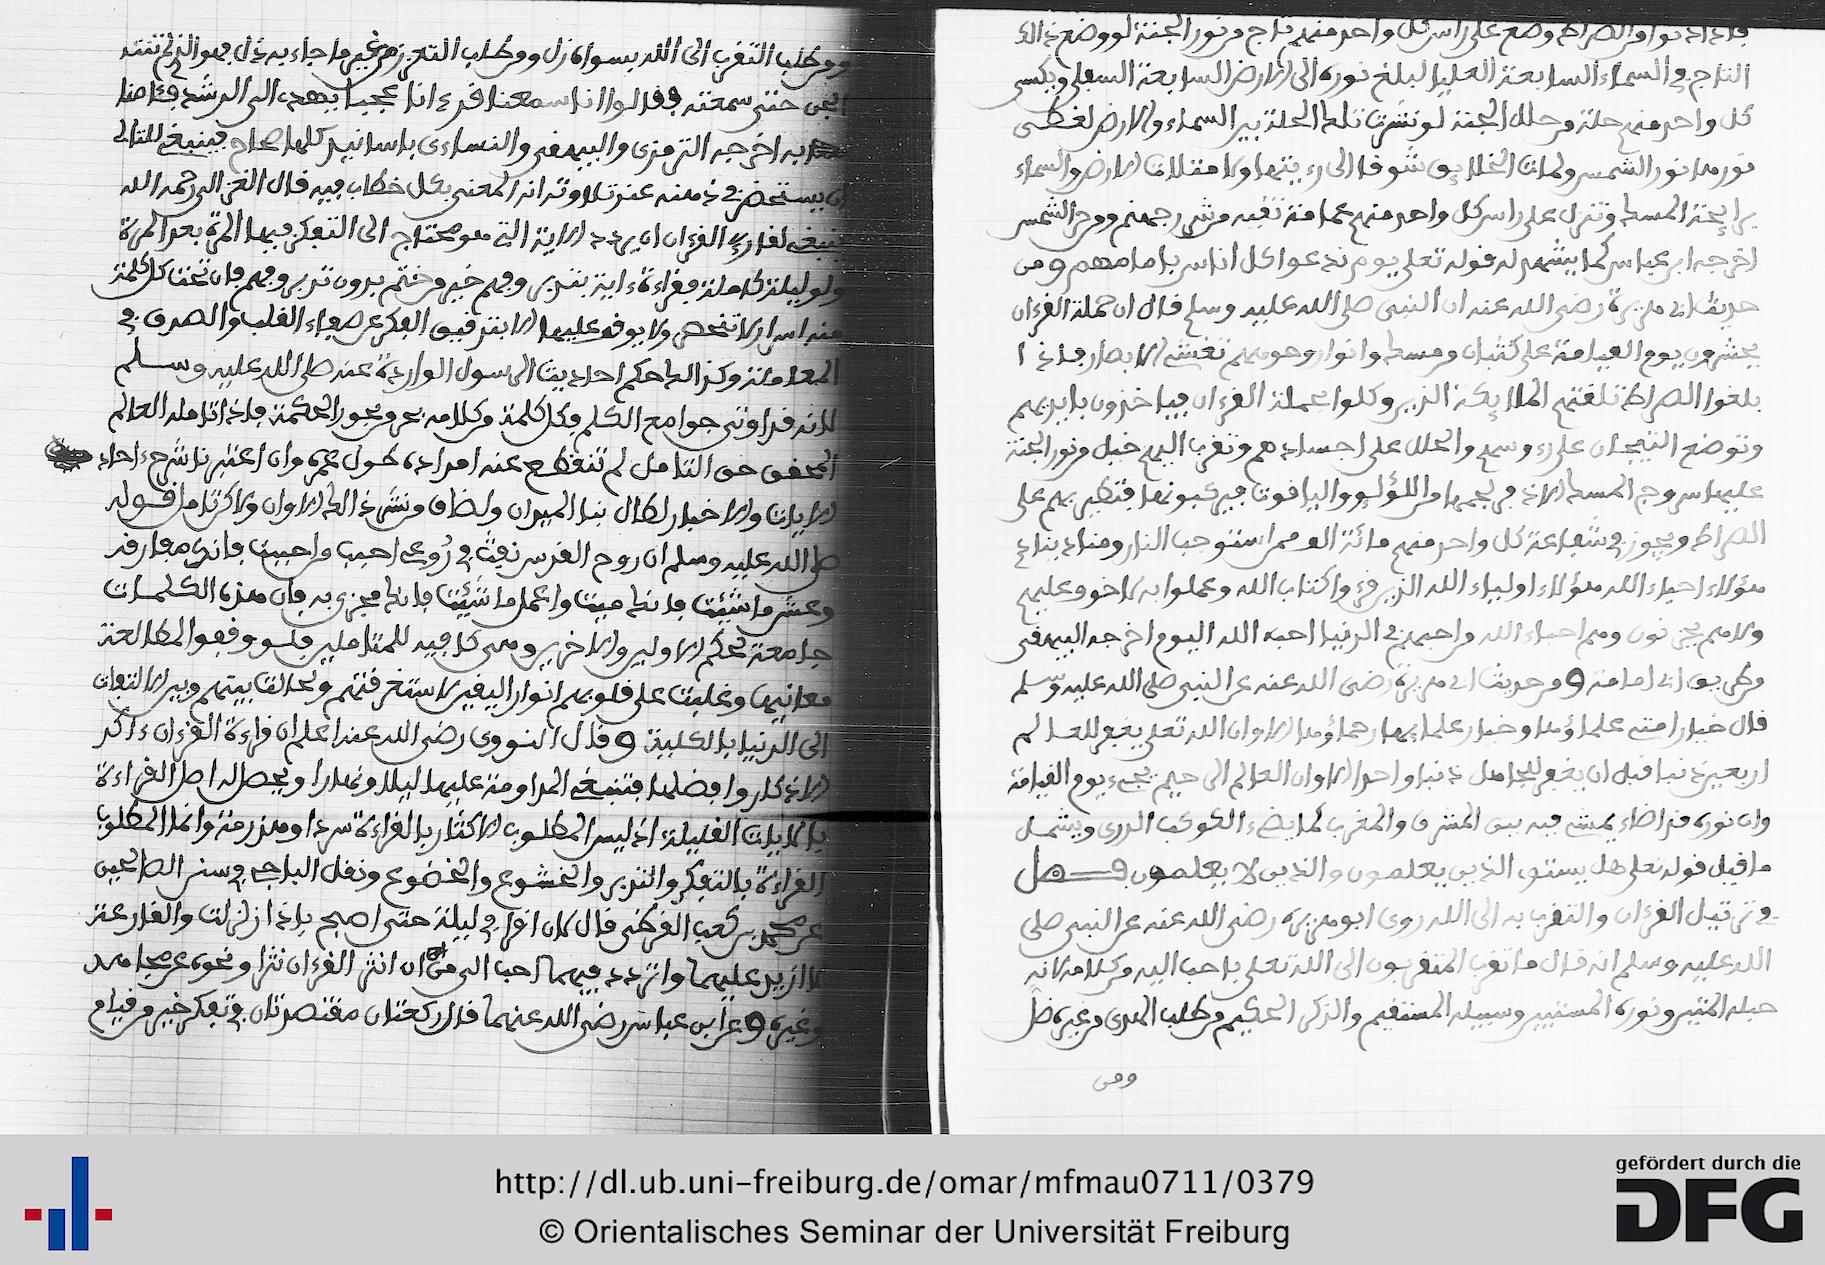 فإذا دنوا من الصراط وضع على راس كل واحد منهم تاج من نور الجنة لو وضع ذالك
التاج في السماء السابعة العليا لبلغ نوره الى الارض السابعة السفلى ويكسى
كل واحد منهم حلة من حلل الجنة لو نشرت تلك الحلة بين السماء والارض لغطى
نورها نور الشمس ولمات الخلايق شوقا الى رءيتها ولامتلات الارض والسماء
برايحة المسك وتنزل على راس كل واحد منهم غمامة تقيه من شر جهنم ومن حر الشمس
اخرجه ابن عباس كما يشهد له قوله تعلى يوم ندعوا كل اناس بامامهم ومن
حديث ابي هريرة رضي الله عنه ان النبي صلى الله عليه وسلم قال ان حملة القرءان
يحشرون يوم القيامة على كثبان من مسك وانوار وجوههم تغشى الابصار فإذا
بلغوا الصراط تلقتهم الملايكة الذين وكلوا بحملة القرءان فياخذون بايديهم
وتوضع التيجان على رءوسهم والحلل على اجسادهم وتقرب اليهم خيل من نور الجنة
عليها سروج المسك الاذفر لجمها من اللؤلؤ والياقوت فيركبونها فتطير بهم على
الصراط ويجوز في شفاعة كل واحد منهم مائة الف ممن استوجب النار ومناد ينادي
هؤلاء احباء الله هؤلاء اولياء الله الذين قرءوا كتاب الله وعملوا به لا خوف عليهم
ولا هم يحزنون وهم احباء الله من احبهم في الدنيا احبه الله اليوم اخرجه البيهقي
من طريق ابي امامة ومن حديث ابي هريرة رضي الله عنه عن النبي صلى الله عليه وسلم
قال خيار امتي علماؤها وخيار علمايها رحماؤها الا وان الله تعلى يغفر للعالم
اربعين ذنبا قبل ان يغفر للجاهل ذنبا واحدا الا وان العالم الرحيم يجيء يوم القيامة
وان نوره قد اضاء يمشي فيه بين المشرق والمغرب كما يضيء الكوكب الدري ويشمل
ما قيل قوله تعلى هل يستوى الذين يعلمون والذين لا يعلمون فصل
في ترتيل القرءان والتقرب به الى الله روى ابو هريرة رضي الله عنه عن النبي صلى
الله عليه وسلم انه قال ما تقرب المتقربون الى الله تعلى باحب اليه من كلامه لانه
حبله المتين ونوره المستبين وسبيله المستقيم والذكر الحكيم من طلب الهدى من غيره ضل
ومن
ومن طلب التقرب الى الله بسواه زل ومن طلب التعزز من غير ما جاء به ذل فهو الذي لم تنته
الجن حتى سمعته فقالوا انا سمعنا قرءانا عجبا يهدي الى الرشد فئامنا
به اخرجه الترمذي والبيهقي والنساءي باسانيد كلها صحاح فينبغي للتالي
ان يستحضر في ذهنه عند تلاوته انه المعني بكل خطاب فيه قال الغزالي رحمه الله
ينبغي لقارئ القرءان ان يردد الاية التي هو محتاج الى التفكر فيها المرة بعد المرة
ولو ليلة كاملة فقراءة ءاية بتدبر وفهم خير من ختم بدون تدبر وفهم فان تحت كل كلمة
منه اسرار لا تنحصر ولا يوقف عليها الا بتدقيق الفكر عن صفاء القلب والصدق في
المعاملة وكذالك حكم احاديث الرسول الواردة عنه صلى الله عليه وسلم
لانه قد اوتي جوامع الكلم فكل كلمة من كلامه بحر من بحور الحكمة فإذا تامله العالم
المحقق حق التامل لم تنقطع عنه امداده طول عمره وان اعتبرنا شرح ءاحاد
الايات والاخبار لطال بنا الميدان ولضاق من نشر ذالك الاوان ولاكن تامل قوله
صلى الله عليه وسلم ان روح القدس نفث في رُوعي احبب من احببت فانك مفارقه
وعش ما شئت فانك ميت واعمل ما شئت فانك مجزي به فإن هذه الكلمات
جامعة لحكم الاولين والاخرين وهي كافية للمتاملين فلو وقفوا لمطالعة
معانيها وغلبت على قلوبهم انوار اليقين لاستغرقتهم ولحالت بينهم وبين الالتفات
الى الدنيا بالكلية وقال النووي رضي الله عنه اعلم ان قراءة القرءان ءاكد
الاذكار وافضلها فتنبغي المداومة عليها ليلا ونهارا ويحصل له اصل القراءة
بالايات القليلة اذ ليس المطلوب الاكثار بالقراءة سردا وهذرمة وانما المطلوب
القراءة بالتفكر والتدبر والخشوع والخضوع ونقل الباجي في سنن الصالحين
عن محمد بن كعب القرظي قال لان اقرا في ليلة حتى اصبح بإذا زلزلت والقارعة
لا ازيد عليهما واتردد فيهما احب الي من ان انثر القرءان نثرا ونحوه عن مجاهد
وغيره وعن ابن عباس رضي الله عنهما قال ركعتان مقتصرتان في تفكر خير من قيام
http://dl.ub.uni-freiburg.de/omar/mfmau0711/0379
© Orientalisches Seminar der Universität Freiburg
gefördert durch die
DFG